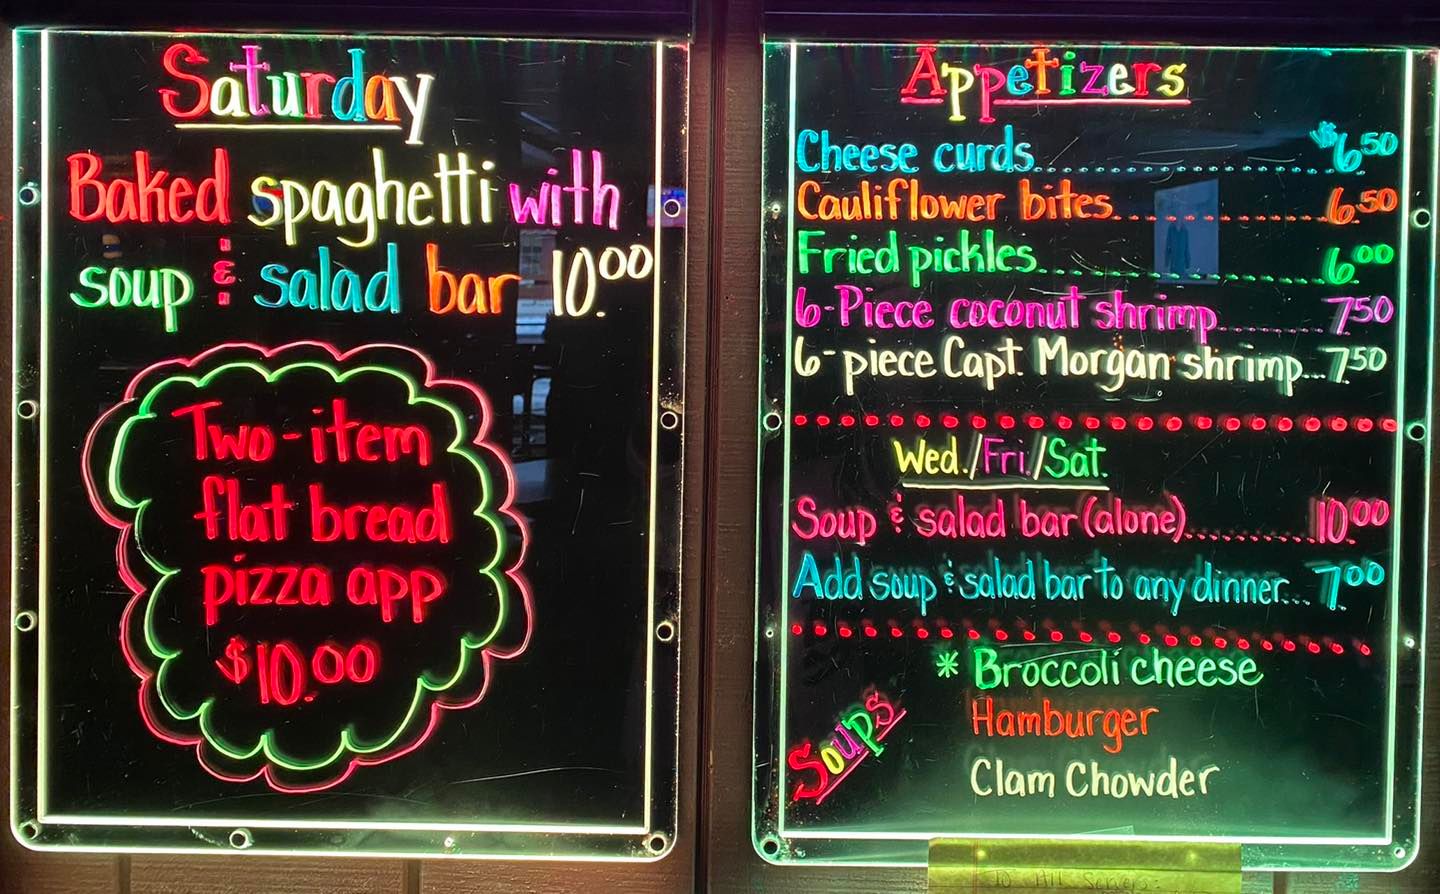 Saturday
Baked spaghetti with
soup & salad bar 10.00
Two-item
flat bread
pizza app
$10.00
Appetizers
Cheese curds.......................$6.50
Cauliflower bites..................6.50
Fried pickles......................6.00
6-Piece coconut shrimp..........7.50
6-piece Capt. Morgan shrimp...7.50
Wed./Fri./Sat.
Soup & salad bar (alone)............10.00
Add soup & salad bar to any dinner...7.00
Soups
* Broccoli cheese
Hamburger
Clam Chowder
To All Servers